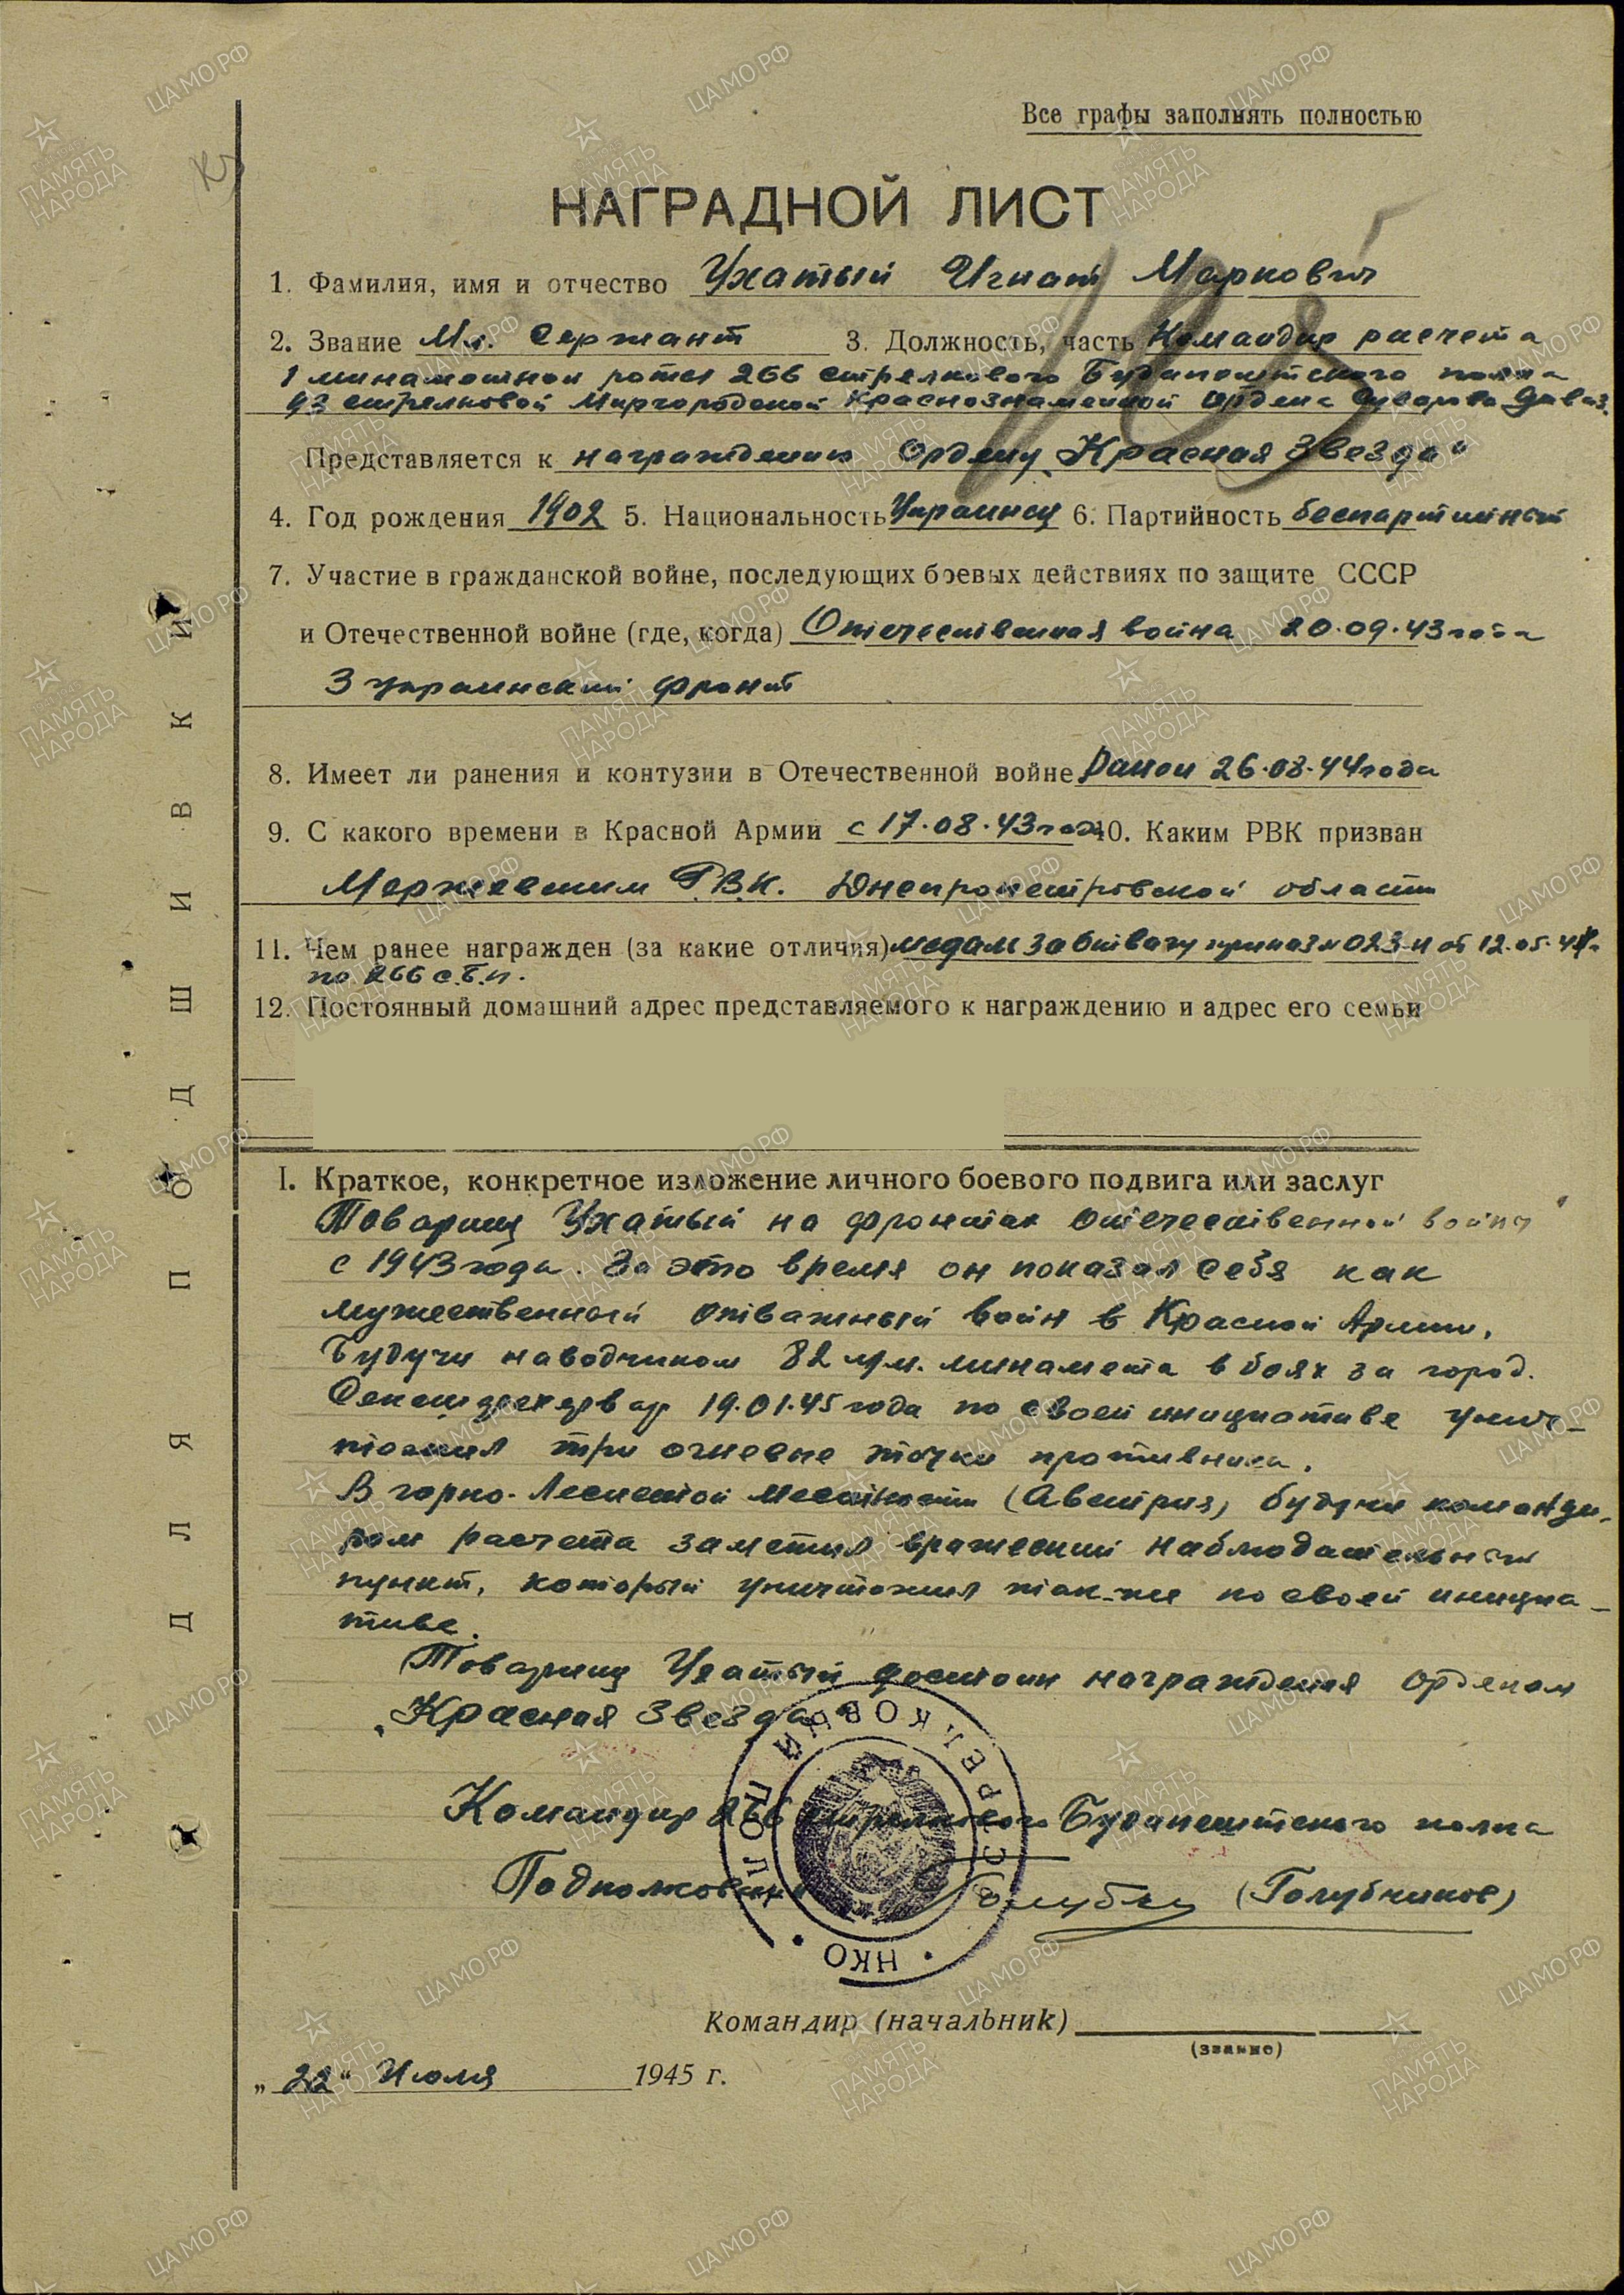 Все графы заполнять полностью
НАГРАДНОЙ ЛИСТ
1. Фамилия, имя и отчество Ухатый Игнат Маркович
2. Звание Мл. Сержант 3. Должность, часть Командир расчета
1 минаметной роты 266 стрелкового Будапештского полка
93 стрелковой Миргородской Краснознаменной ордена Суворова дивиз.
Представляется к награждению Ордену „Красная Звезда“
4. Год рождения 1902 5. Национальность Украинец 6. Партийность беспартийный
7. Участие в гражданской войне, последующих боевых действиях по защите СССР
и Отечественной войне (где, когда) Отечественная война 20.09.43 года
3 украинский фронт
8. Имеет ли ранения и контузии в Отечественной войне Ранен 26.08.44 года
9. С какого времени в Красной Армии с 17.08.43 года 10. Каким РВК призван
Р.В.К. Днепропетровской области
11. Чем ранее награжден (за какие отличия) медаль За отвагу приказ № 023-н от 12.05.44г.
по 266 с.б.п.
12. Постоянный домашний адрес представляемого к награждению и адрес его семьи
I. Краткое, конкретное изложение личного боевого подвига или заслуг
Товарищ Ухатый на фронтах Отечественной войны
с 1943 года. За это время он показал себя как
мужественный отважный войн в Красной Армии.
Будучи наводчиком 82 м/м. минамета в боях за город.
19.01.45 года по своей инициативе унич-
тожил три огневые точки противника.
В горно-Лесистой местности (Австрия) будучи команди-
ром расчета заметил вражеский наблюдательный
пункт, который уничтожил так-же по своей инициа-
тиве.
Товарищ Ухатый достоин награждения орденом
„Красная Звезда“
Командир 266 стрелкового Будапештского полка
Подполковник (Голубчиков)
СТРЕЛКОВЫЙ ПОЛК
НКО
СССР
Командир (начальник)
(звание)
„22“ Июля 1945 г.
ДЛЯ ПОДШИВКИ
ЦАМО РФ
ПАМЯТЬ НАРОДА